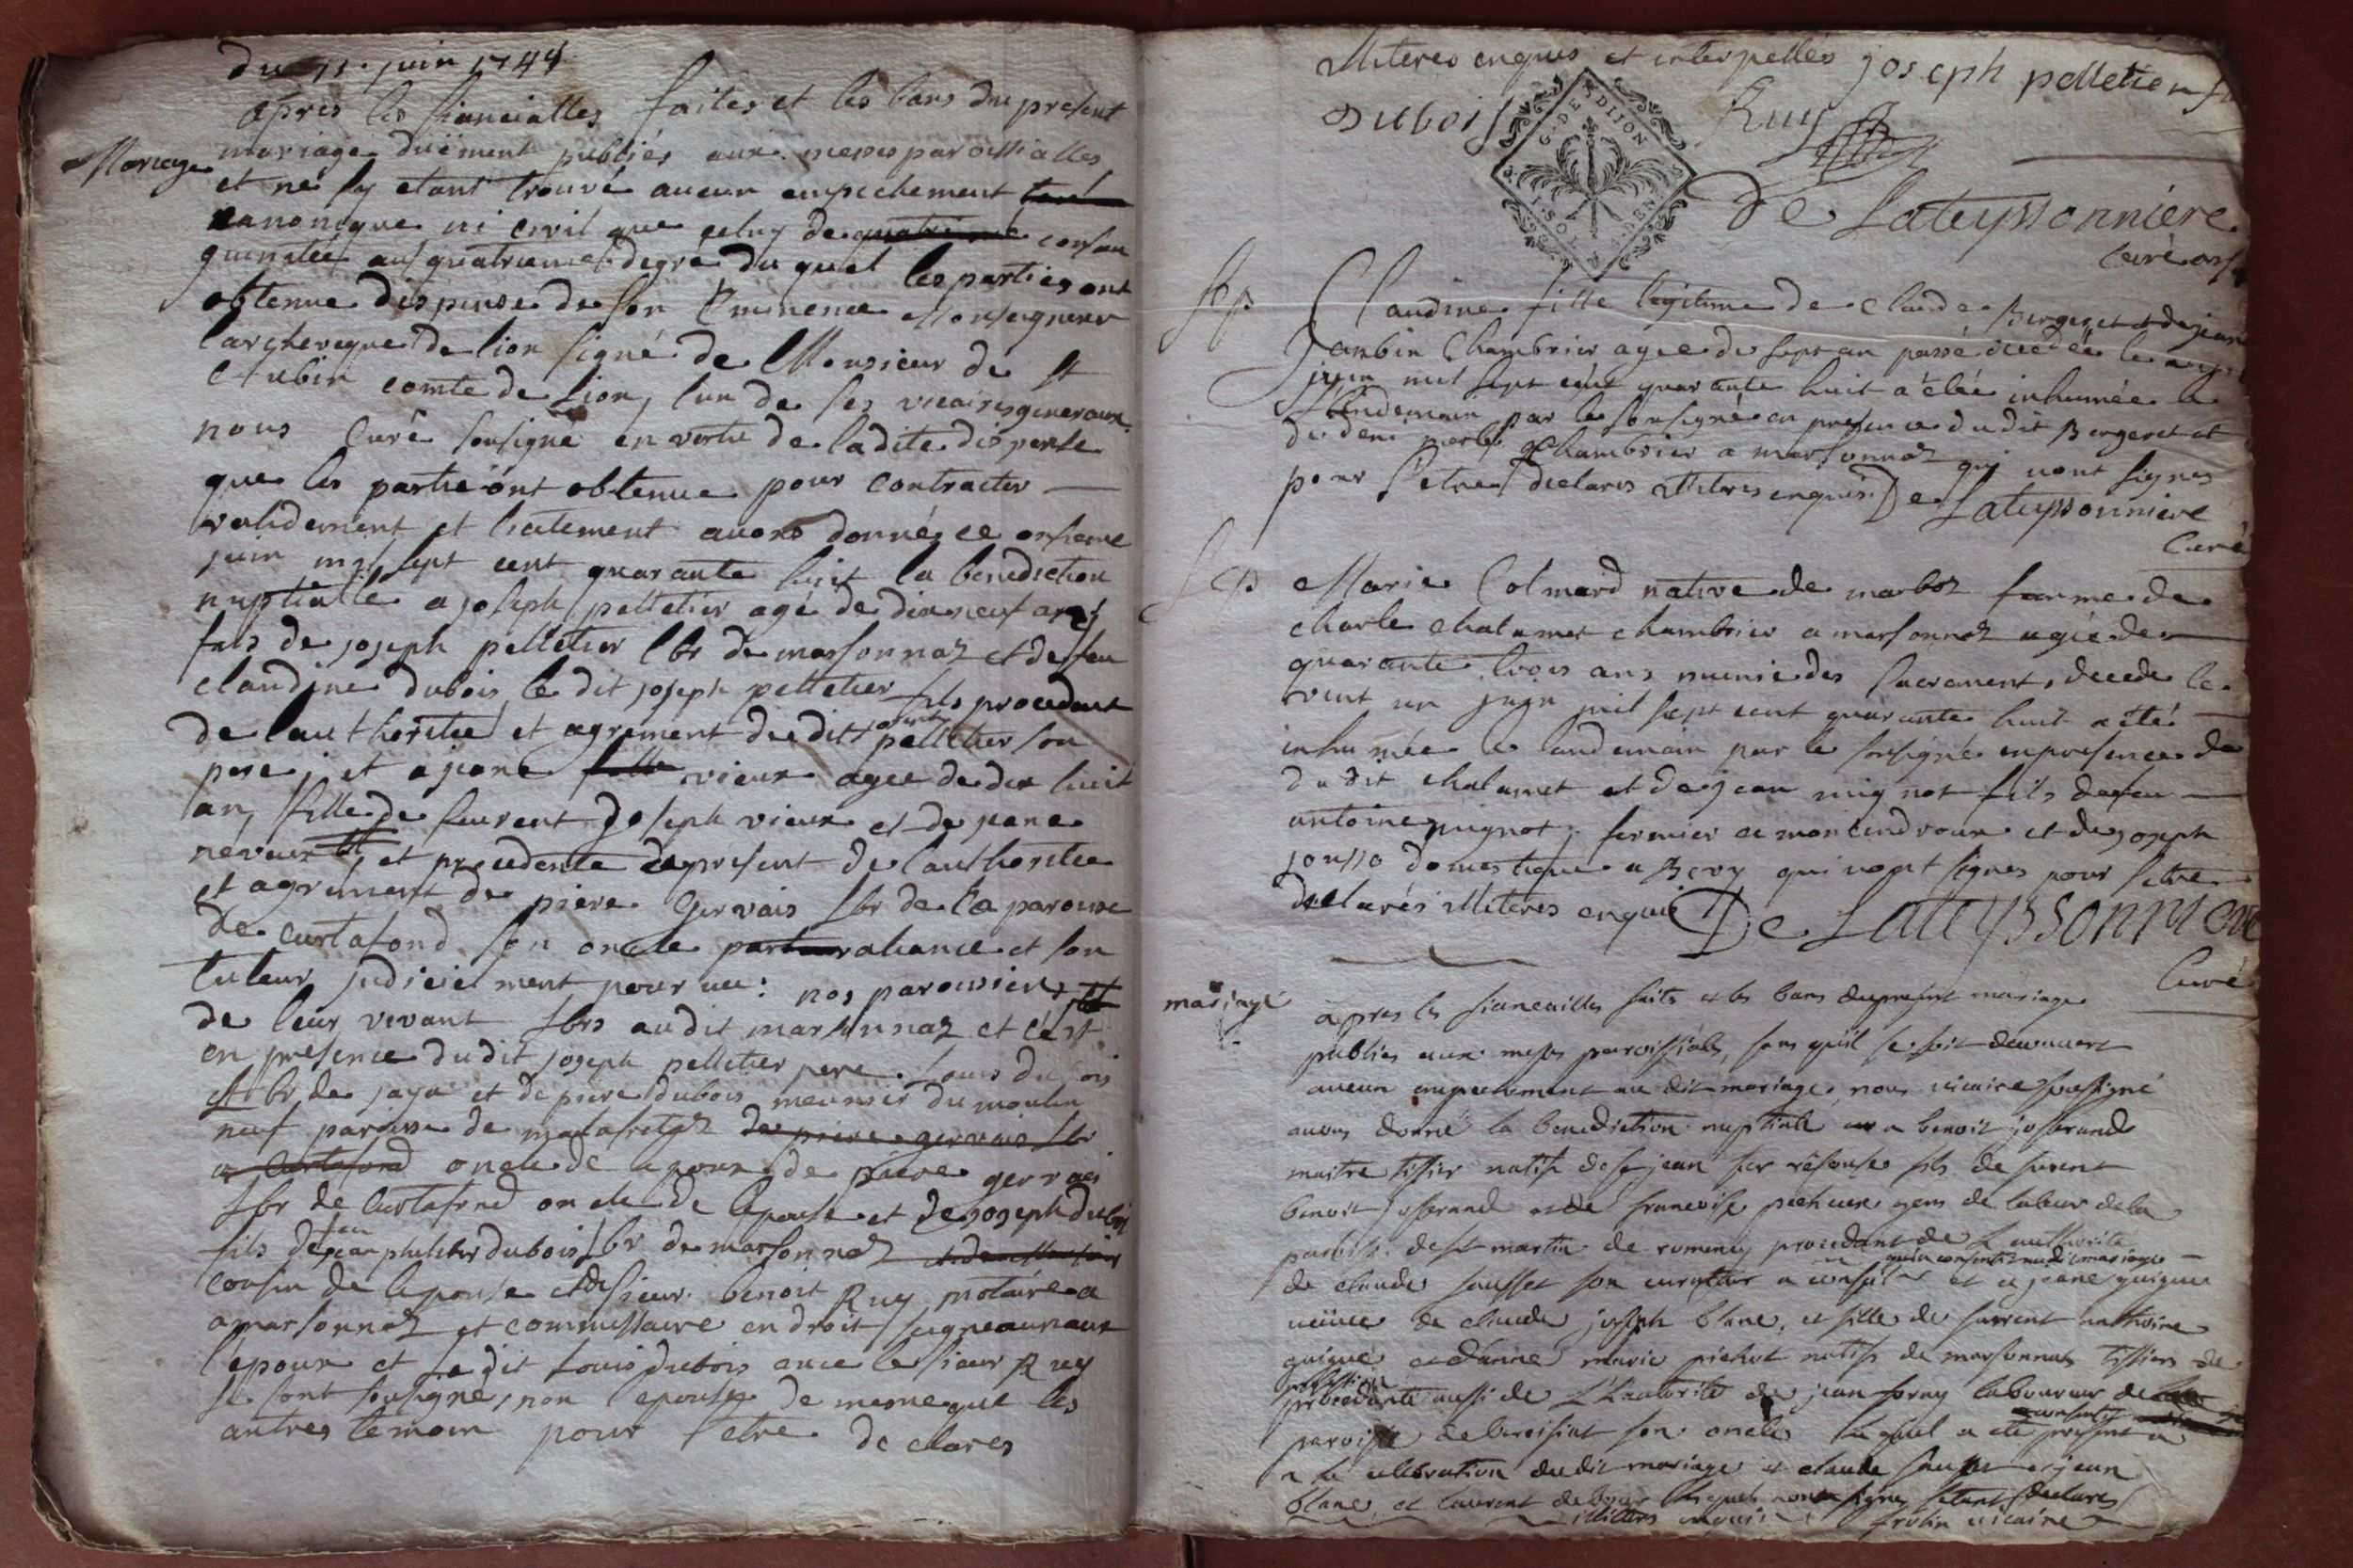 du 11 juin 1748
apres les fiancialles faites et les bans du present
Mariage
mariage düement publiés aux meses paroissialles
et ne sy etant trouvé aucun empechement
canonique ni civil que celuy de consan
guinitée au quatrieme degré du quel les parties ont
obtenue dispense de son Eminence Monseigneur
larcheveque de lion signé de Monsieur de St
Aubin comte de Lion, lun de ses vicaires generaux
nous Curé sousigné en vertu de ladite dispense
que les partie ont obtenue pour contracter
validement et licitement avons donné ce onsieme
juin mil sept cent quarante huit la benediction
nuptialle a joseph pelletier agé de dix neuf ans
fils de joseph pelletier lbr de marsonnaz et de feu
claudine dubois le dit joseph pelletier fils procedant
de lauthoritée et agrement dudit joseph pelletier son
pere, et a jeane vieux agee de dix huit
an, fille de feurent joseph vieux et de jeane
nevaux et procedente de present de lauthoritee
et agrément de piere Gervais lbr de la paroisse
de curtafond son oncle par aliance et son
tuteur judiciel ment pour vu: nos paroissiens
de leur vivant lbrs audit marsonnaz et c'est
en presence dudit joseph pelletier pere. Louis dubois
lbr de jaya et de piere dubois meunier du moulin
neuf paroisse de malafretaz de piere gervais lbr
a Curtafond oncle de lepoux de piere gervais
lbr de Curtafond oncle de lepouse et de joseph dubois
fils de feu jean philibert dubois lbr de marsonnaz
cousin de lepouse et de sieur benoit Ruy notaire a
a marsonnaz et commissaire en droit seigneauriaux
lepoux et ledit Louis dubois avec le sieur Ruy
se sont sousigné, non lepouse de meme que les
autres temoin pour letre declares
illiteres enquis et interpellés joseph pelletier
Dubois Ruy
G. DE DIJON
De Lateyssonniere
Curé
Sep
Claudine fille legitime de Claude Bergeret et de jeane
Jambin Chambrier agee de sept an passé decedée le
juin mil sept cent quarante huit a étée inhumée le
lendemain par le sousigné en presence dudit Bergeret et
de deni merle Chambrier a marsonnaz qui nont signes
pour l'etre declares illiteres enquis. De Lateyssonniere
Curé
Sep
Marie Colmard native de marboz famme de
Charle Chalamet chambrier a marsonnaz agée de
quarante trois ans munie des Sacrements decede le
vint un juin mil sept cent quarante huit a été
inhumée le landemain par le sousigné en presence de
dudit chalamet et de jean mignot fils de feu
antoine mignot fermier a moncindroux et de joseph
jousso domestique a Bevy qui nont signes pour letre
declarés illiteres enquis De Lateyssonniere
Curé
mariage
apres les fiancailles faits et les bans du present mariage
publies aux meses paroissiales, sans qu'il se soit decouvert
aucun empechement au dit mariage, nous vicaire soussigné
avons donné la benediction nuptiale a benoit joserand
maitre tissier natif de st jean sur reissouse fils de furent
benoit joserand et de francoise pochieux gens de labeur de la
paroisse de st martin de romeney procedant de L'authorité
de claude sausset son curateur a conseil qui a consenti audit mariage et a jeane guigue
veuve de claude joseph blanc, et fille de furent anthoine
guigue et d'anne marie pichot natifs de marsonnas tissiers de
profession
procedante aussi de L'hautorité de jean loruy laboureur de la
paroisse de baroisiat son oncle lequel a ete present a
a la celebration dudit mariage et claude sausset et jean
blanc, et laurent debour lesquels nont signes setant declares
illiteres enquis frolin vicaire